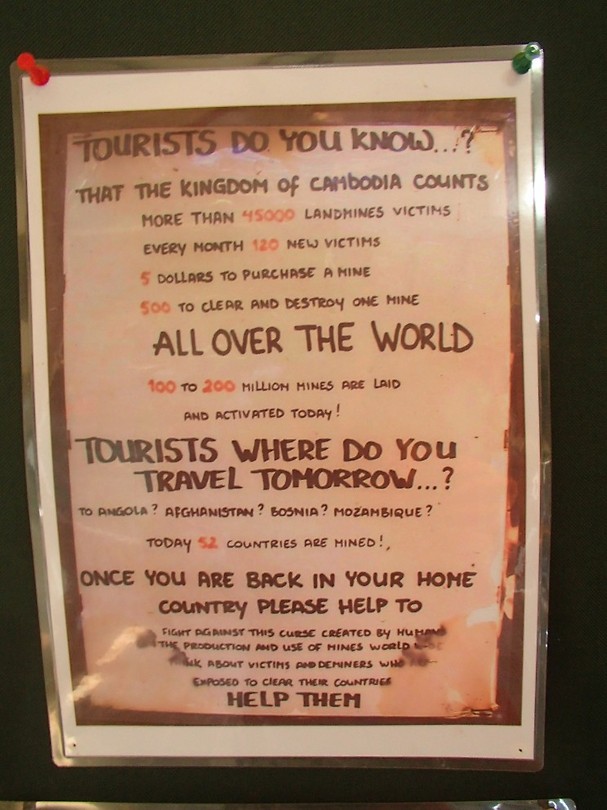 TOURISTS DO YOU KNOW...?
THAT THE KINGDOM of CAMBODIA COUNTS
MORE THAN 45000 LANDMINES VICTIMS
EVERY MONTH 120 NEW VICTIMS
5 DOLLARS TO PURCHASE A MINE
500 TO CLEAR AND DESTROY ONE MINE
ALL OVER THE WORLD
100 TO 200 MILLION MINES ARE LAID
AND ACTIVATED TODAY!
TOURISTS WHERE DO YOU
TRAVEL TOMORROW...?
TO ANGOLA? AFGHANISTAN? BOSNIA? MOZAMBIQUE?
TODAY 52 COUNTRIES ARE MINED!,
ONCE YOU ARE BACK IN YOUR HOME
COUNTRY PLEASE HELP TO
FIGHT AGAINST THIS CURSE CREATED BY HUMANS
THE PRODUCTION AND USE OF MINES WORLD
ABOUT VICTIMS AND DEMINERS WHO
EXPOSED TO CLEAR THEIR COUNTRIES
HELP THEM